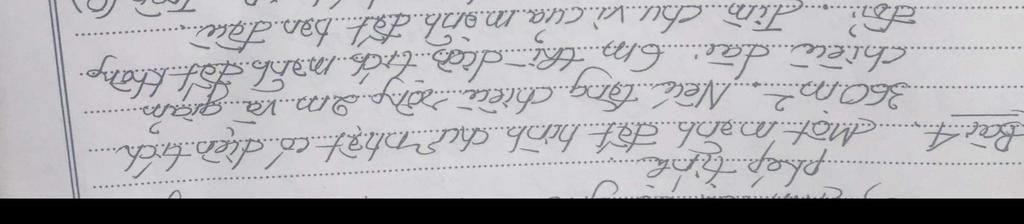 phép tính
Bài 4. Một mảnh đất hình chữ nhật có diện tích
360m². Nếu tăng chiều rộng 2m và giảm
chiều dài 6m thì diện tích mảnh đất không
đổi. Tìm chu vi của mảnh đất ban đầu